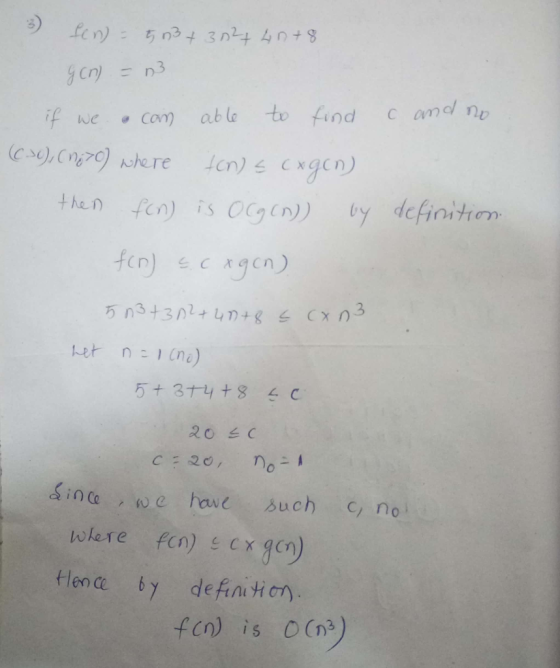 3) f(n) = 5n³ + 3n² + 4n + 8
g(n) = n³
if we can able to find c and n₀
(c>0), (n₀>0) where f(n) ≤ c×g(n)
then f(n) is O(g(n)) by definition.
f(n) ≤ c × g(n)
5n³+3n²+4n+8 ≤ c×n³
Let n = 1 (n₀)
5+3+4+8 ≤ c
20 ≤ c
c = 20, n₀ = 1
Since, we have such c, n₀
where f(n) ≤ c×g(n)
Hence by definition.
f(n) is O(n³)